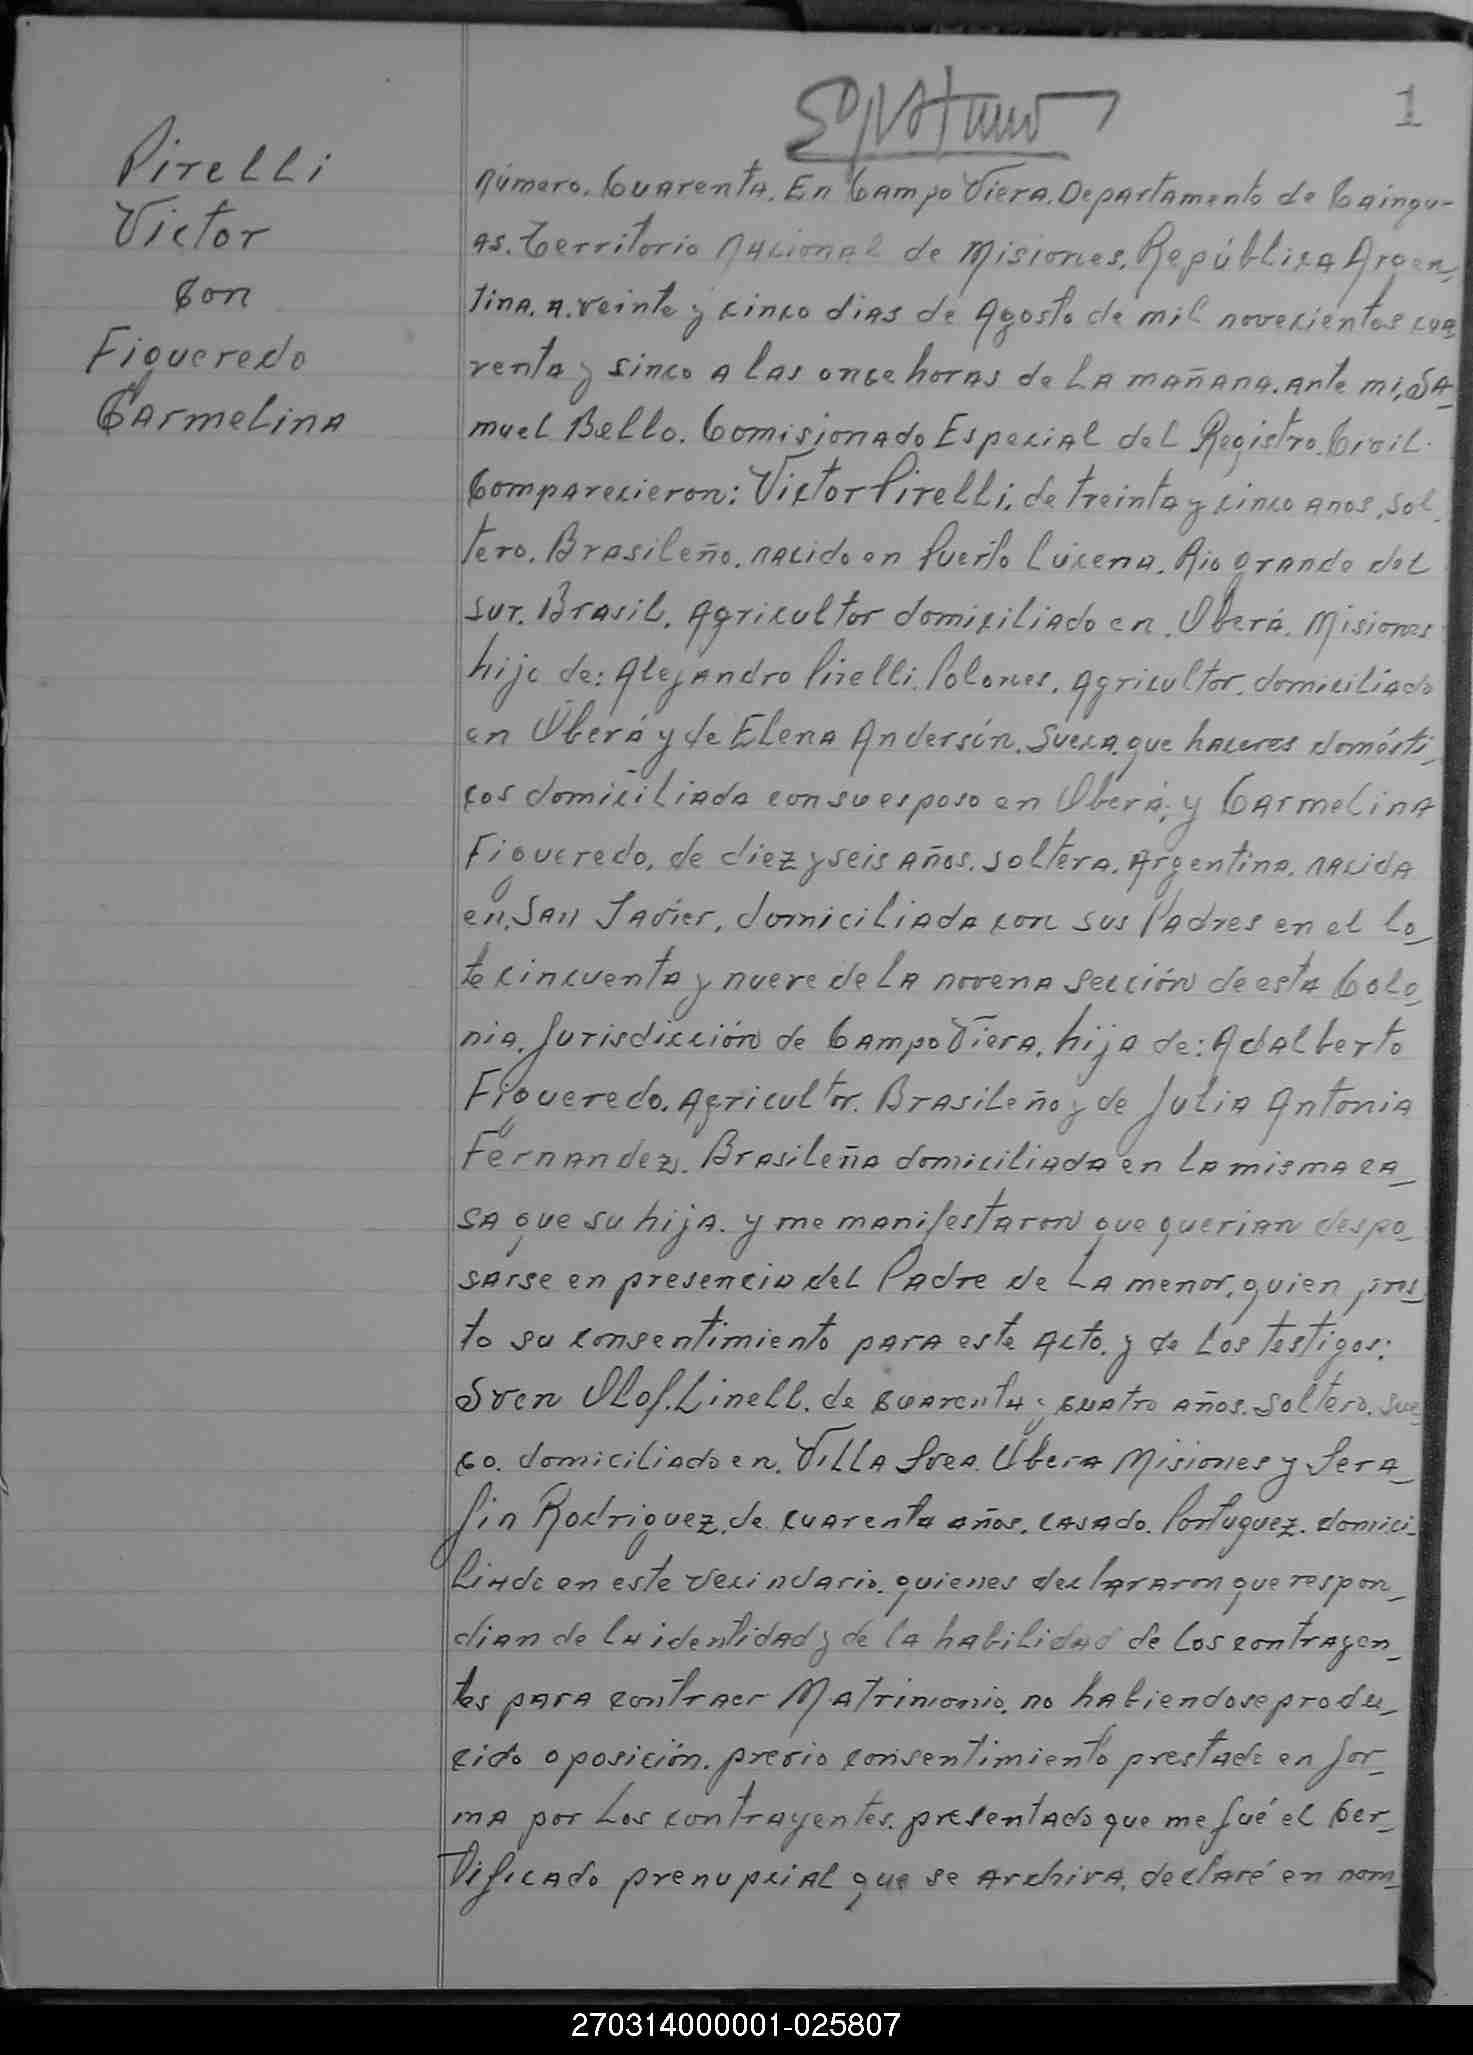 1
Pirelli
Victor
Con
Figueredo
Carmelina
Número. Cuarenta. En Campo Viera. Departamento de Caingu-
as. Territorio Nacional de Misiones. República Argen_
tina. a. veinte y cinco dias de Agosto de mil novecientos cua
renta y sinco a las once horas de la mañana. ante mi, Sa_
muel Bello. Comisionado Especial del Registro. Civil.
Comparecieron: Victor Pirelli, de treinta y cinco anos, sol_
tero. Brasileño. nacido en Puerto Lucena. Rio grande del
sur. Brasil. Agricultor domiciliado en. Oberá. Misiones
hijo de: Alejandro Pirelli. Polones. Agricultor. domiciliado
en Oberá y de Elena Andersón. Sueca. que haceres domésti_
cos domiciliada con su esposo en Oberá, y Carmelina
Figueredo, de diez y seis años. soltera. Argentina. nacida
en. San Javier, domiciliada con sus Padres en el lo_
te cincuenta y nueve de la novena sección de esta Colo_
nia. Jurisdicción de Campo Viera. hija de: Adalberto
Figueredo. Agricultor. Brasileño y de Julia Antonia
Fernandez. Brasileña domiciliada en la misma ca_
sa que su hija. y me manifestaron que querian despo_
sarse en presencia del Padre de la menor, quien pres_
to su consentimiento para este acto. y de los testigos:
Sven Olof. Linell. de cuarenta y cuatro años. soltero. sue_
co. domiciliado en. Villa Svea. Obera Misiones y Sera_
fin Rodriguez, de cuarenta años. casado. Portuguez. domici_
liado en este vecindario. quienes declararon que respon_
dian de la identidad y de la habilidad de los contrayen_
tes para contraer Matrimonio, no habiendose produ_
cido oposición. previo consentimiento prestado en for_
ma por los contrayentes. presentado que me fué el cer_
tificado prenupcial que se archiva, declaré en nom_
270314000001-025807